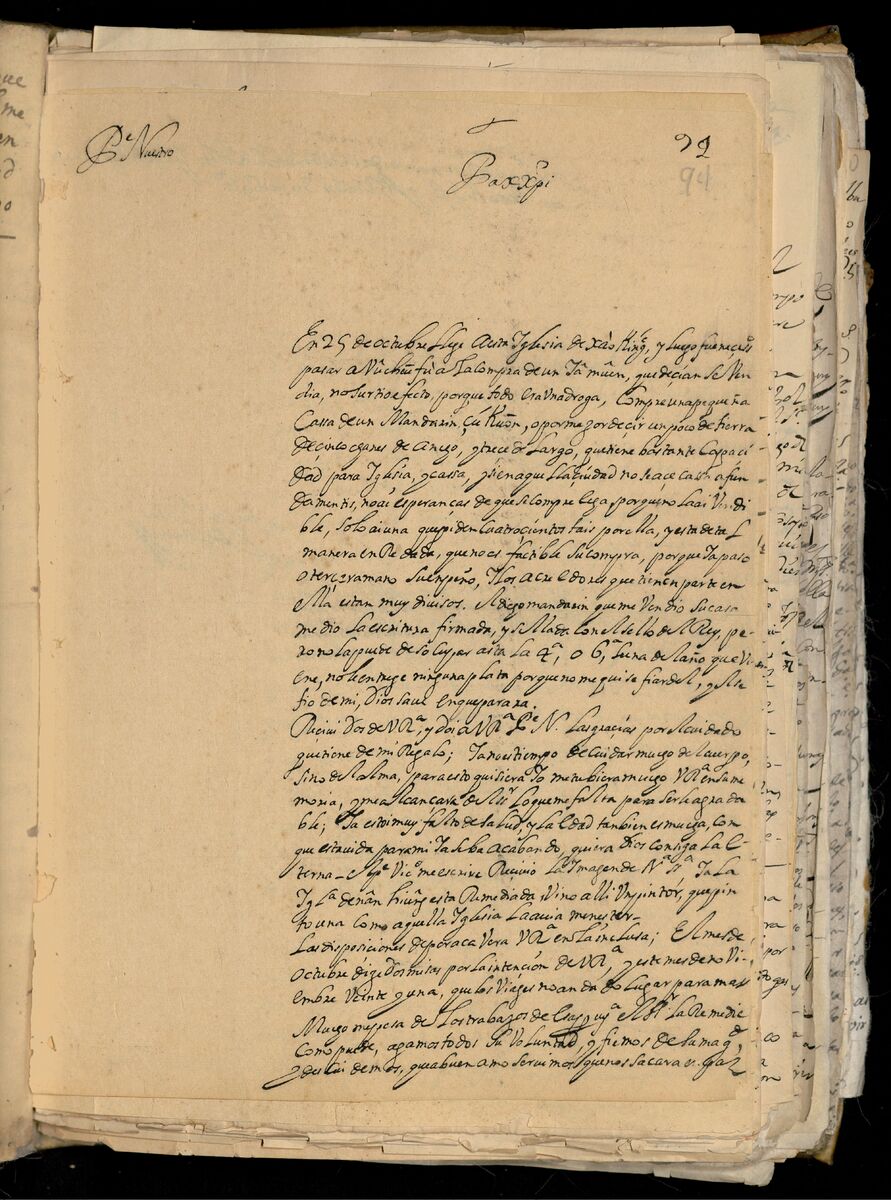 Pe Nuestro
92
Pax Xpi
94
En 25 de octubre llege a esta Iglesia de xào Kingˢ, y luego fue necessº
pasar a Nân hiûn fù a la compra de un Tâ muên, que deçian se Ven
dia, no surtio efecto, porque todo era Vna droga, Compre una pequeña
Cassa de un Mandarin, çú Kuōn, o por megor decir un poco de tierra
de cinco çanes de ancgo, y trece de largo, que tiene bastante Capaci
dad para Iglesia, y cassa, y si en aquella ciudad no se açe cassa a fun
damentis, no ai esperanças de que se Compre eca, porque no la ai Vendi
ble, solo ai una que piden Cuatrocientos tais por ella, y esta de tal
manera enRedada, que no es factible su Compra, porque Ja paso
o tercera mano su enpeño, Y los acreedores que tienen parte en
ella estan muy divisos. El digo mandarin que me Vendio su casa
me dio la escritura firmada, y sellada con el sello del Rey, pe
ro no la puede desocupar asta la 4ª, o 6ª luna del año que Vi
ene, no le entrege ninguna plata porque no me quise fiar del, y el se
fio de mi, Dios save en que parara.
Recivi dos de VRª, y doi a VRª Pe N. las gracias por el cuidado
que tiene de mi Regalo; Ja no es tiempo de cuidar mugo del cuerpo,
sino del alma, para esto quisiera Io me tubiera mugo VRª en su me
moria, y me alcançara del Sr lo que me falta para serle agrada
ble; Ja estoi muy falto de salud, y la edad tanbien es muga, con
que esta vida para mi Ja se ba acabando, quiera Dios consiga la e
terna— el Pe Vicº me escrive Recivio la Imagen de Nª Sª, Ja la
Iglª de nân hiûng esta Remediada, Vino alli Vn pintor, que pin
to una como aquella Iglesia la avia menester—
Las disposiciones de por aca Vera VRª en la inclusa; El mes de
octubre dige dos misas por la intención de VRª, y este mes de no Vi
embre Veinte y una, que los Viages no an dado lugar para mas
Mugo me pesa de los trabajos de esa ... el Sr la Remedie
como puede, agamos todos su Voluntad, y fiemos de su magd,
y des cui demos, que a buen amo servimos, que nos sacara en paz